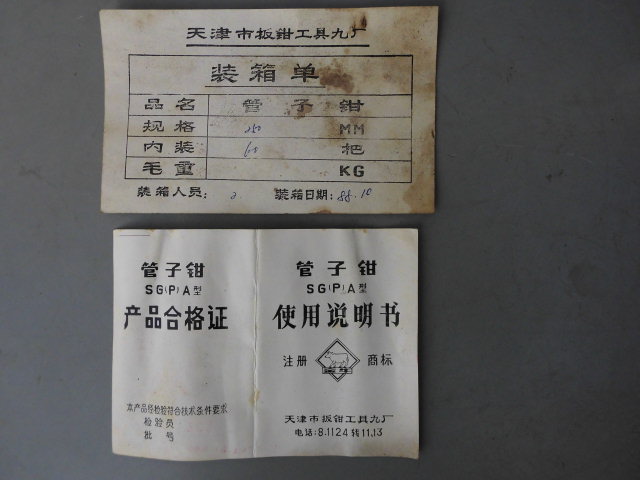 天津市扳钳工具九厂
装箱单
品名 管子钳
规格 250 MM
内装 60 把
毛重 KG
装箱人员: 2 装箱日期: 88.10
管子钳
SG(P)A型
产品合格证
本产品经检验符合技术条件要求
检验员
批号
管子钳
SG(P)A型
使用说明书
注册 商标
天津市扳钳工具九厂
电话: 8.1124 转11.13